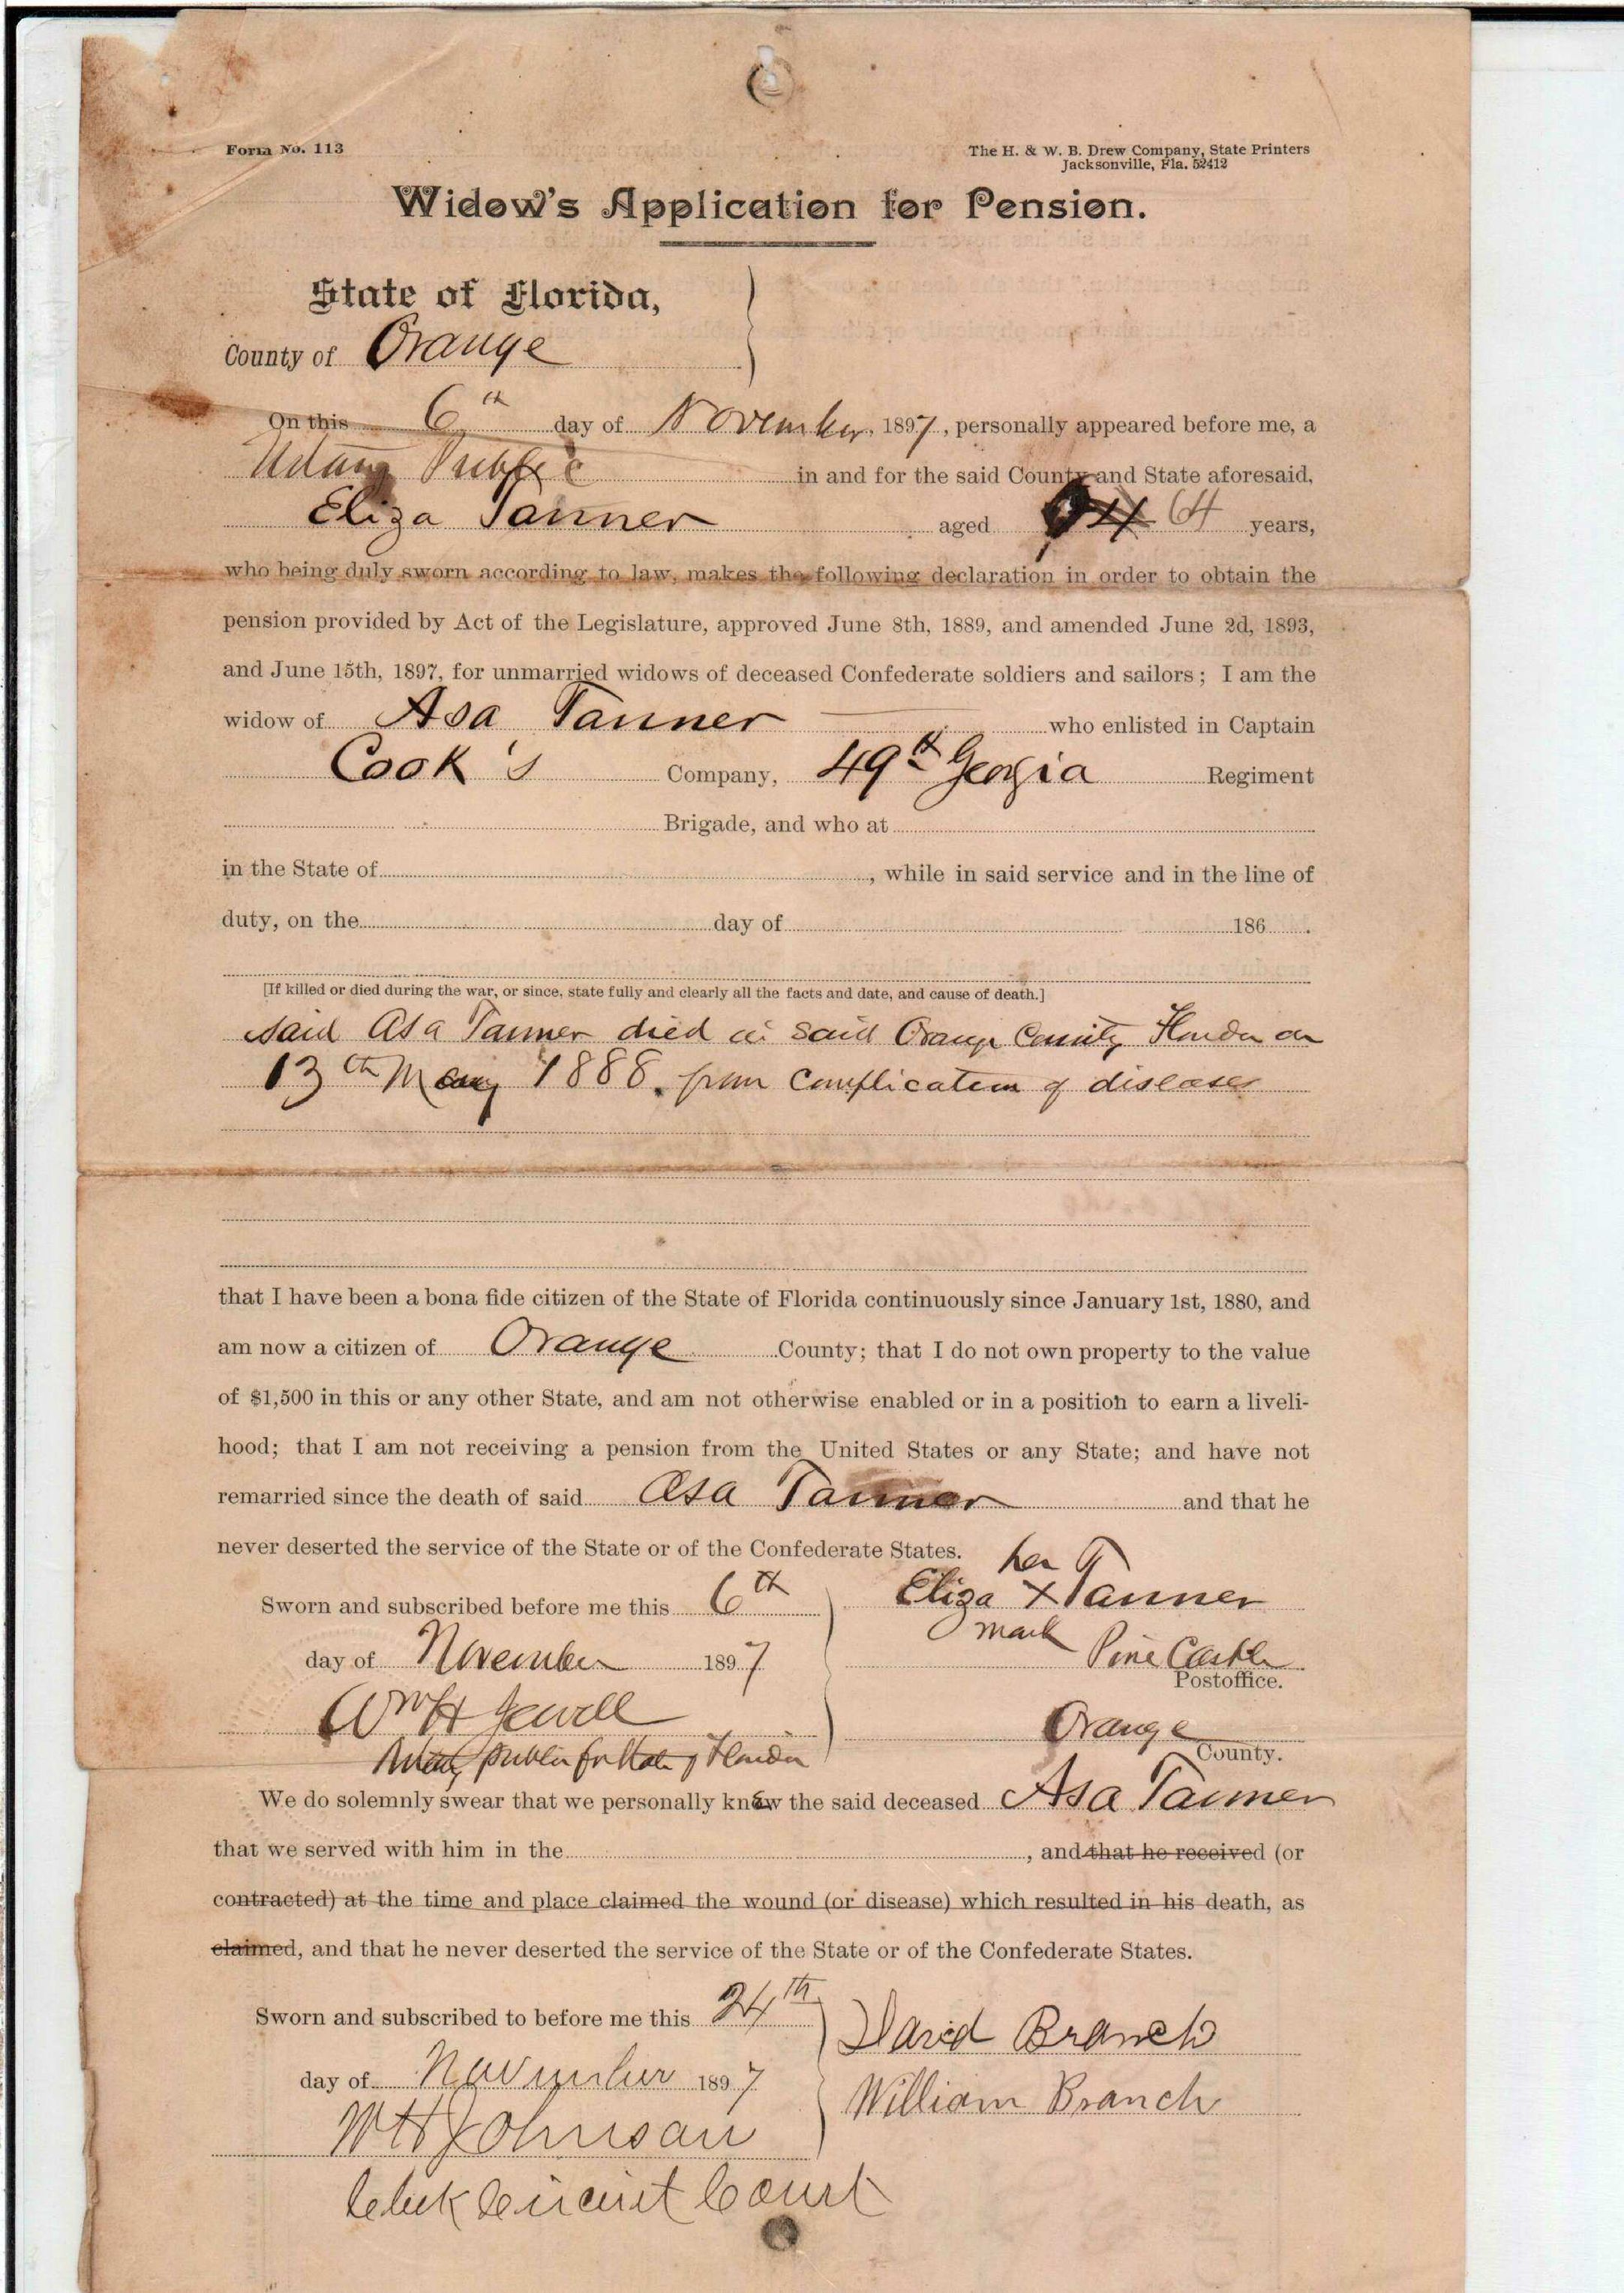 Form No. 113
The H. & W. B. Drew Company, State Printers
Jacksonville, Fla. 52412
Widow's Application for Pension.
State of Florida,
County of Orange
On this 6th day of November, 1897, personally appeared before me, a
Notary Public in and for the said County and State aforesaid,
Eliza Tanner aged 64 years,
who being duly sworn according to law, makes the following declaration in order to obtain the
pension provided by Act of the Legislature, approved June 8th, 1889, and amended June 2d, 1893,
and June 15th, 1897, for unmarried widows of deceased Confederate soldiers and sailors; I am the
widow of Asa Tanner who enlisted in Captain
Cook's Company, 49th Georgia Regiment
Brigade, and who at
in the State of , while in said service and in the line of
duty, on the day of 186 .
[If killed or died during the war, or since, state fully and clearly all the facts and date, and cause of death.]
said Asa Tanner died in said Orange County Florida on
13th May 1888. from complication of diseases
that I have been a bona fide citizen of the State of Florida continuously since January 1st, 1880, and
am now a citizen of Orange County; that I do not own property to the value
of $1,500 in this or any other State, and am not otherwise enabled or in a position to earn a liveli-
hood; that I am not receiving a pension from the United States or any State; and have not
remarried since the death of said Asa Tanner and that he
never deserted the service of the State or of the Confederate States.
her
Sworn and subscribed before me this 6th Eliza X Tanner
mark
day of November 1897 Pine Castle
Postoffice.
Wm H Jewell Orange
County.
Notary public for State of Florida
We do solemnly swear that we personally knew the said deceased Asa Tanner
that we served with him in the , and that he received (or
contracted) at the time and place claimed the wound (or disease) which resulted in his death, as
claimed, and that he never deserted the service of the State or of the Confederate States.
Sworn and subscribed to before me this 24th David Branch
day of November 1897 William Branch
W H Johnson
Clerk Circuit Court